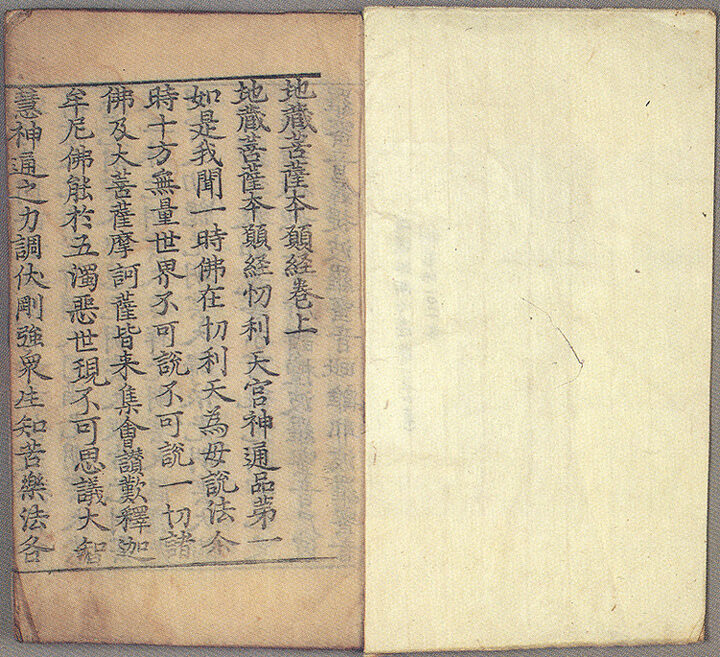 地藏菩薩夲願経卷上
地藏菩薩夲願経忉利天宮神通品第一
如是我聞一時佛在忉利天為母說法尒
時十方無量世界不可說不可說一切諸
佛及大菩薩摩訶薩皆来集會讃歎釋迦
牟尼佛能於五濁惡世現不可思議大智
慧神通之力調伏剛強衆生知苦樂法各